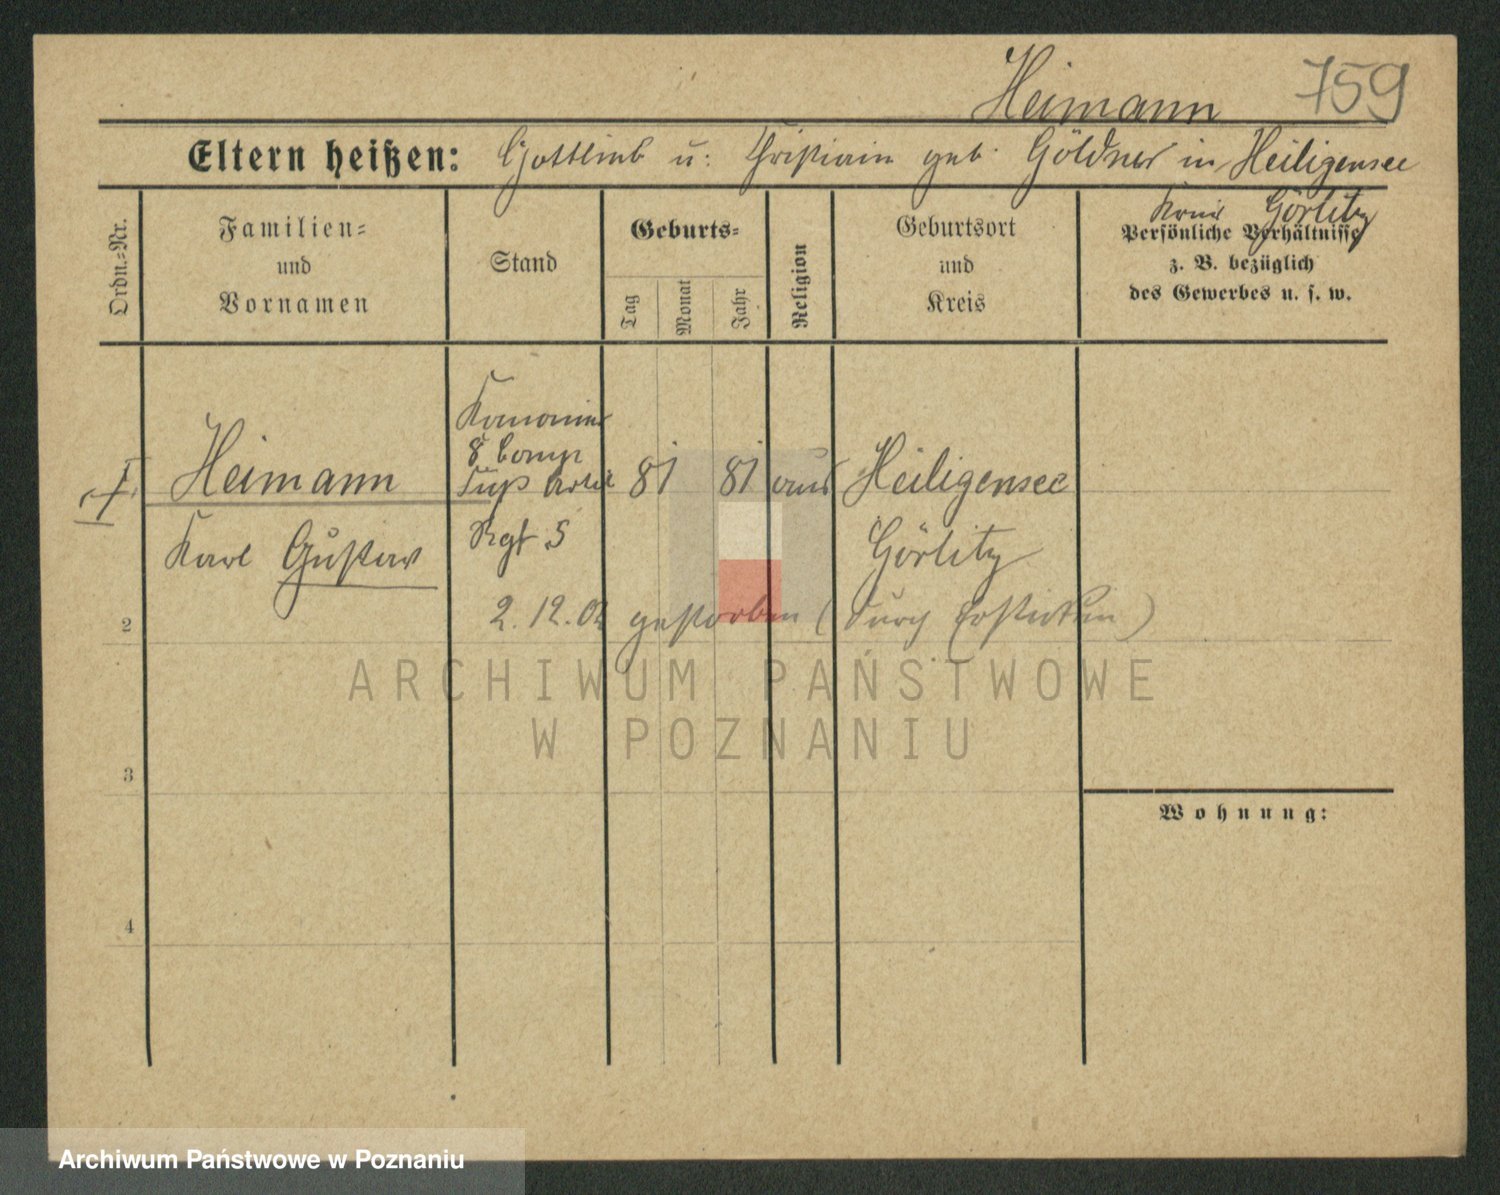 Heimann 759
Eltern heißen: Gottlieb u: Christiane geb. Göldner in Heiligensee
Kreis Görlitz
Ordn.-Nr.
Familien-
und
Vornamen
Stand
Geburts-
Tag
Monat
Jahr
Religion
Geburtsort
und
Kreis
Persönliche Verhältnisse
z. B. bezüglich
des Gewerbes u. s. w.
Kanonier
8 Comp
Fuß Artil
Rgt 5
Heimann
Karl Gustav
81 81
Heiligensee
Görlitz
2
2.12.02 gestorben (durch Ersticken)
3
4
Wohnung:
ARCHIWUM PAŃSTWOWE
W POZNANIU
Archiwum Państwowe w Poznaniu